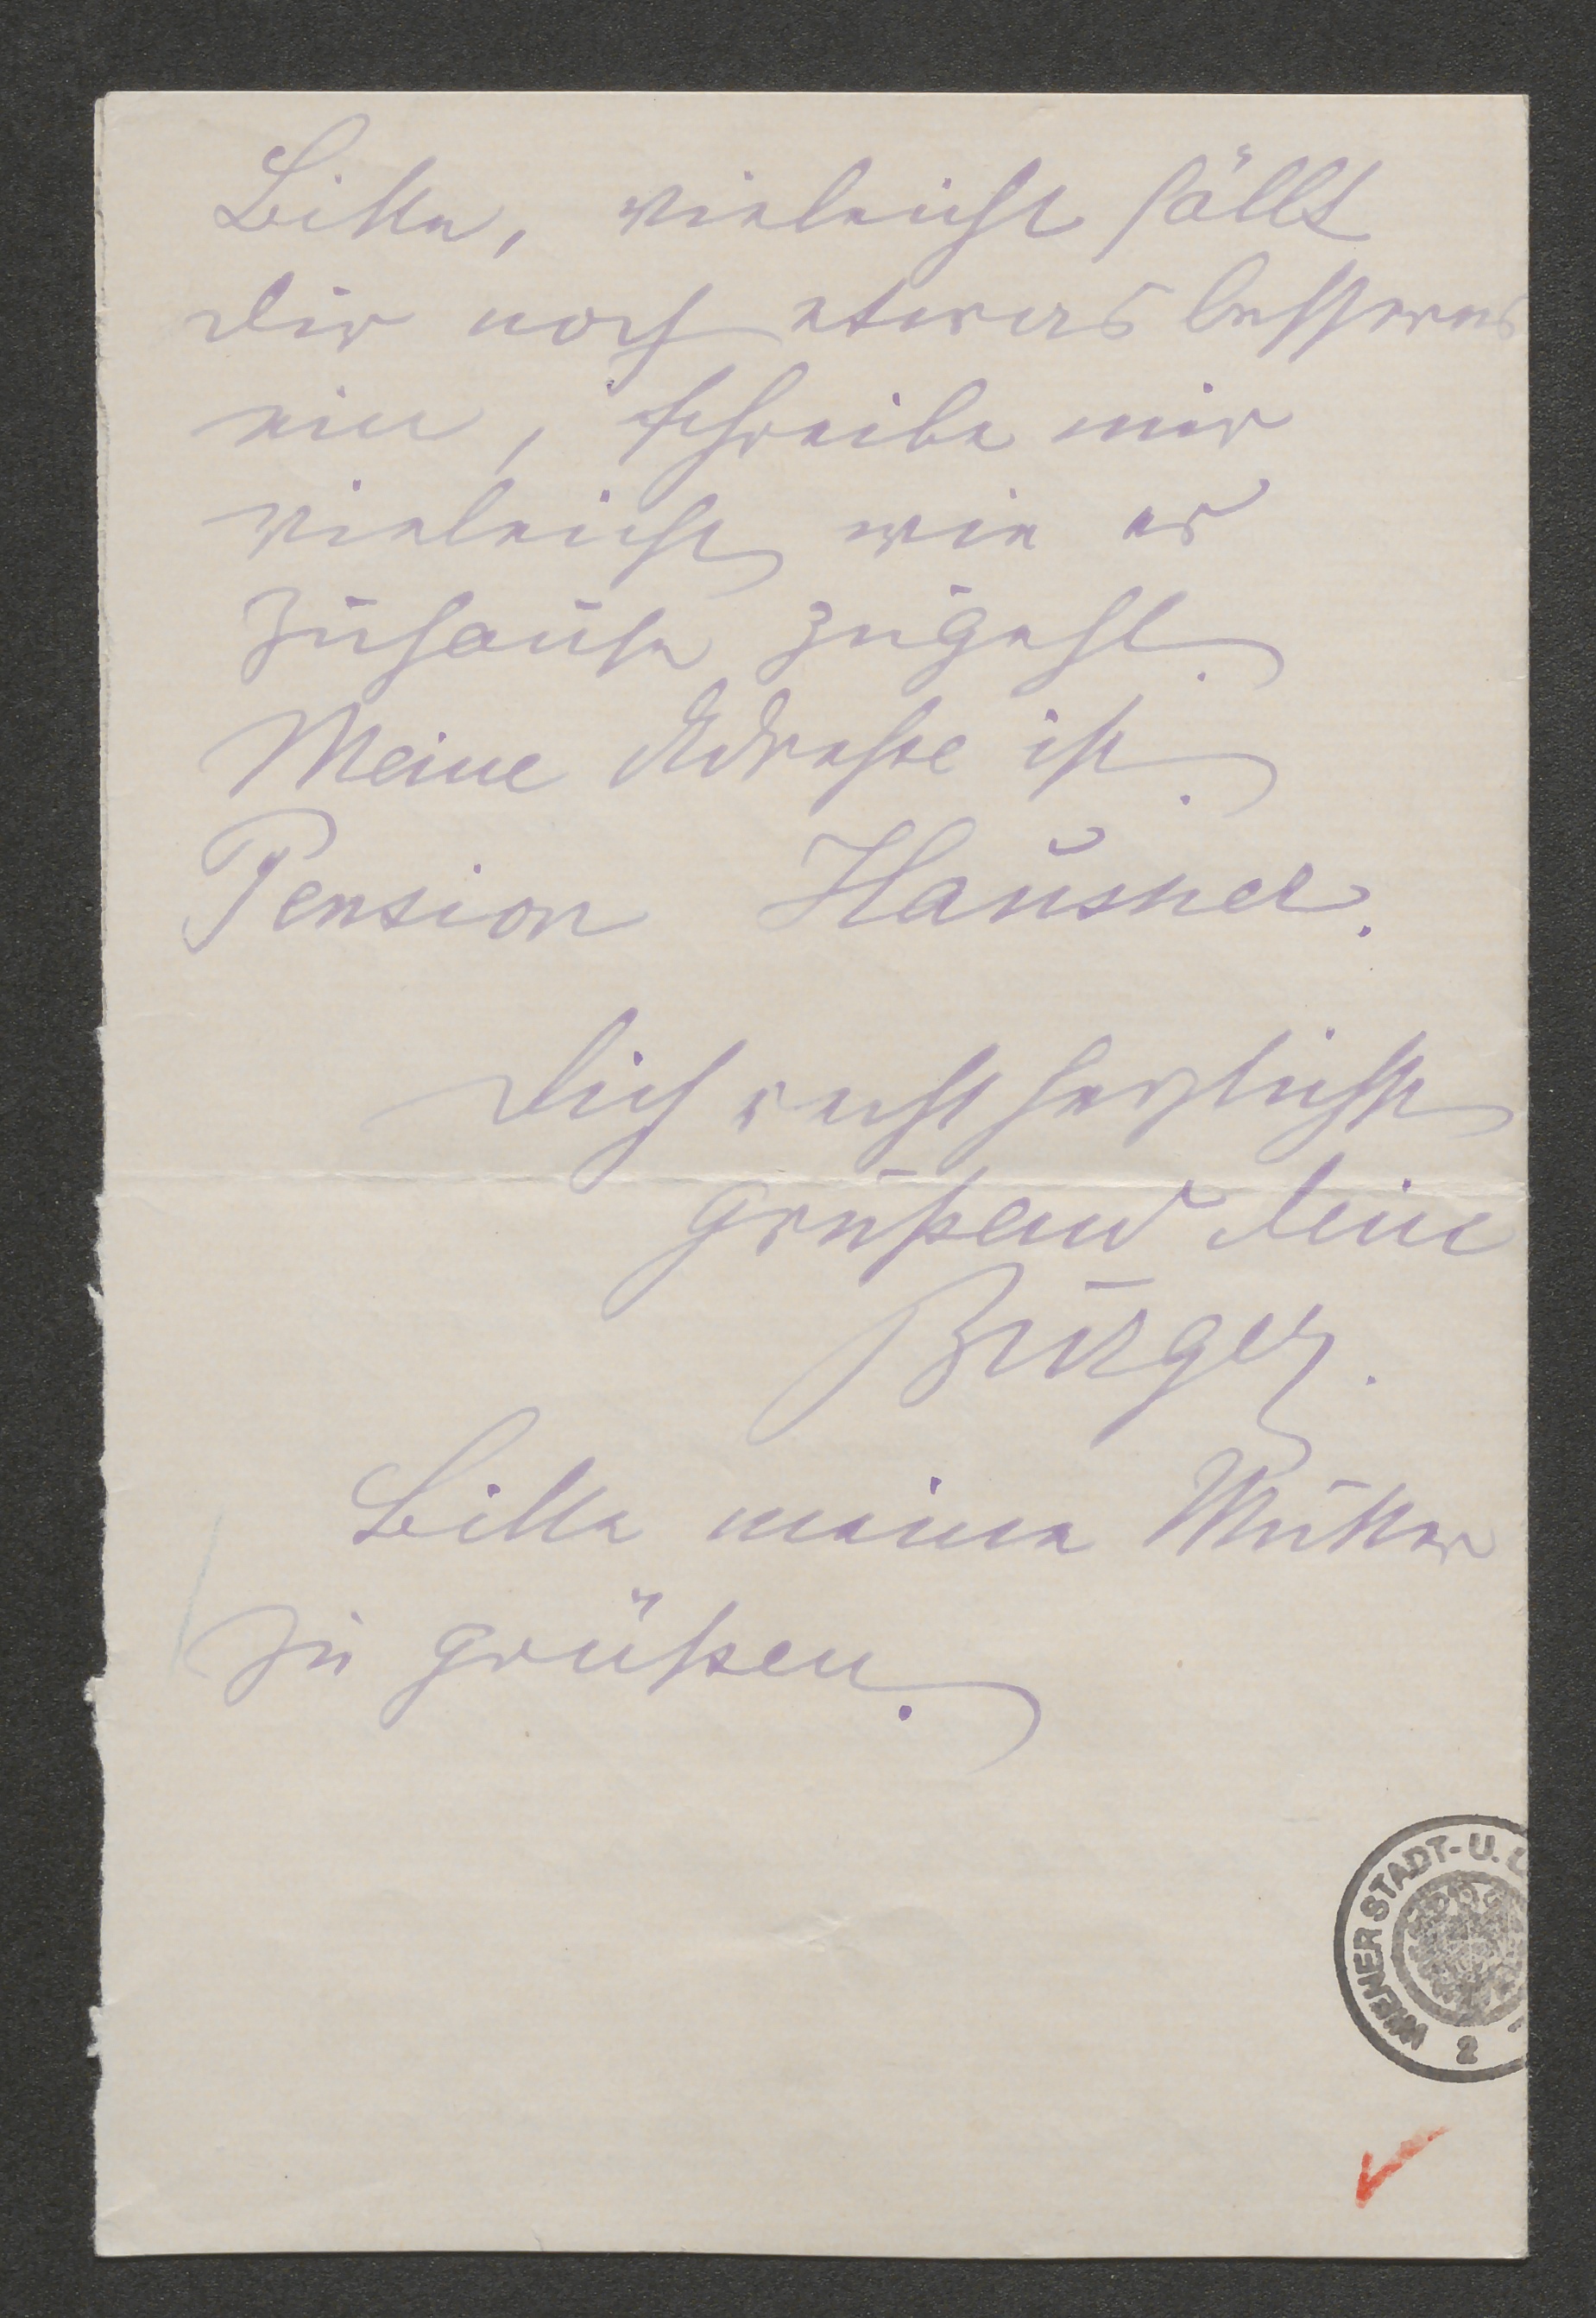 Bitte, vieleicht fällt
dir noch etwas besseres
ein, schreibe mir
vieleicht wie es
zuhause zugeht.
Meine Adresse ist.
Pension Hausner.
Dich recht herzlichst
grüßend deine
Burger.
Bitte meine Mutter
zu grüßen.
WIENER STADT- U. L
2